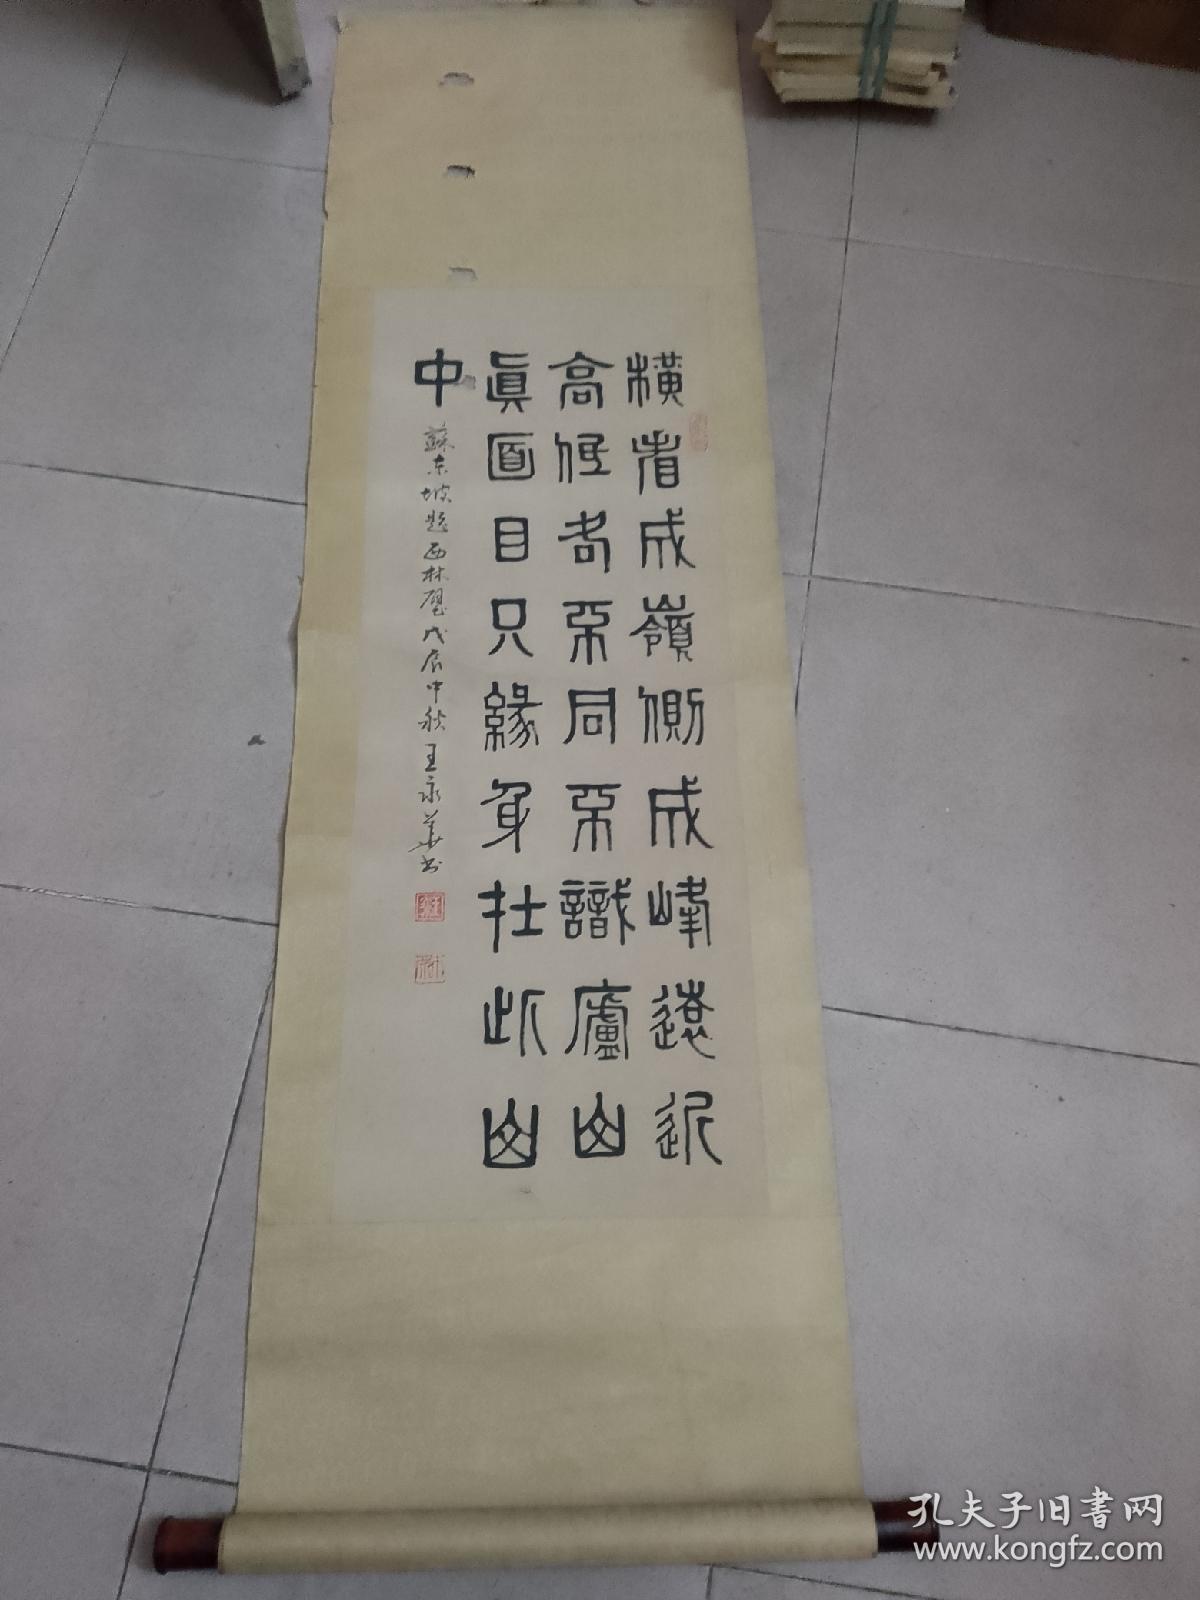 橫看成嶺側成峰遠近
高低各不同不識廬山
眞面目只緣身在此山
中
蘇东坡題西林壁戊辰中秋王永華书
孔夫子旧书网
www.kongfz.com